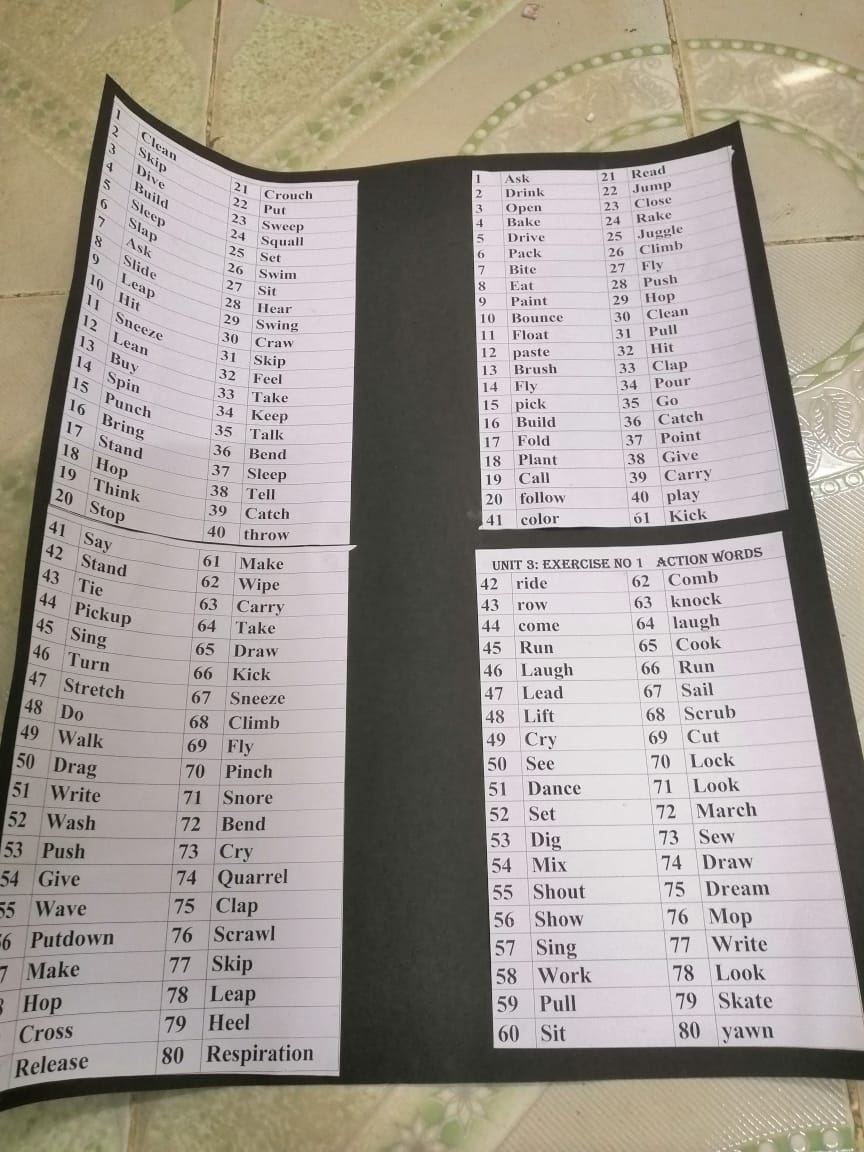 1 Clean 21 Crouch
2 Skip 22 Put
3 Dive 23 Sweep
4 Build 24 Squall
5 Sleep 25 Set
6 Slap 26 Swim
7 Ask 27 Sit
8 Slide 28 Hear
9 Leap 29 Swing
10 Hit 30 Craw
11 Sneeze 31 Skip
12 Lean 32 Feel
13 Buy 33 Take
14 Spin 34 Keep
15 Punch 35 Talk
16 Bring 36 Bend
17 Stand 37 Sleep
18 Hop 38 Tell
19 Think 39 Catch
20 Stop 40 throw
41 Say 61 Make
42 Stand 62 Wipe
43 Tie 63 Carry
44 Pickup 64 Take
45 Sing 65 Draw
46 Turn 66 Kick
47 Stretch 67 Sneeze
48 Do 68 Climb
49 Walk 69 Fly
50 Drag 70 Pinch
51 Write 71 Snore
52 Wash 72 Bend
53 Push 73 Cry
54 Give 74 Quarrel
55 Wave 75 Clap
6 Putdown 76 Scrawl
7 Make 77 Skip
Hop 78 Leap
Cross 79 Heel
Release 80 Respiration
1 Ask 21 Read
2 Drink 22 Jump
3 Open 23 Close
4 Bake 24 Rake
5 Drive 25 Juggle
6 Pack 26 Climb
7 Bite 27 Fly
8 Eat 28 Push
9 Paint 29 Hop
10 Bounce 30 Clean
11 Float 31 Pull
12 paste 32 Hit
13 Brush 33 Clap
14 Fly 34 Pour
15 pick 35 Go
16 Build 36 Catch
17 Fold 37 Point
18 Plant 38 Give
19 Call 39 Carry
20 follow 40 play
41 color 61 Kick
UNIT 3: EXERCISE NO 1 ACTION WORDS
42 ride 62 Comb
43 row 63 knock
44 come 64 laugh
45 Run 65 Cook
46 Laugh 66 Run
47 Lead 67 Sail
48 Lift 68 Scrub
49 Cry 69 Cut
50 See 70 Lock
51 Dance 71 Look
52 Set 72 March
53 Dig 73 Sew
54 Mix 74 Draw
55 Shout 75 Dream
56 Show 76 Mop
57 Sing 77 Write
58 Work 78 Look
59 Pull 79 Skate
60 Sit 80 yawn